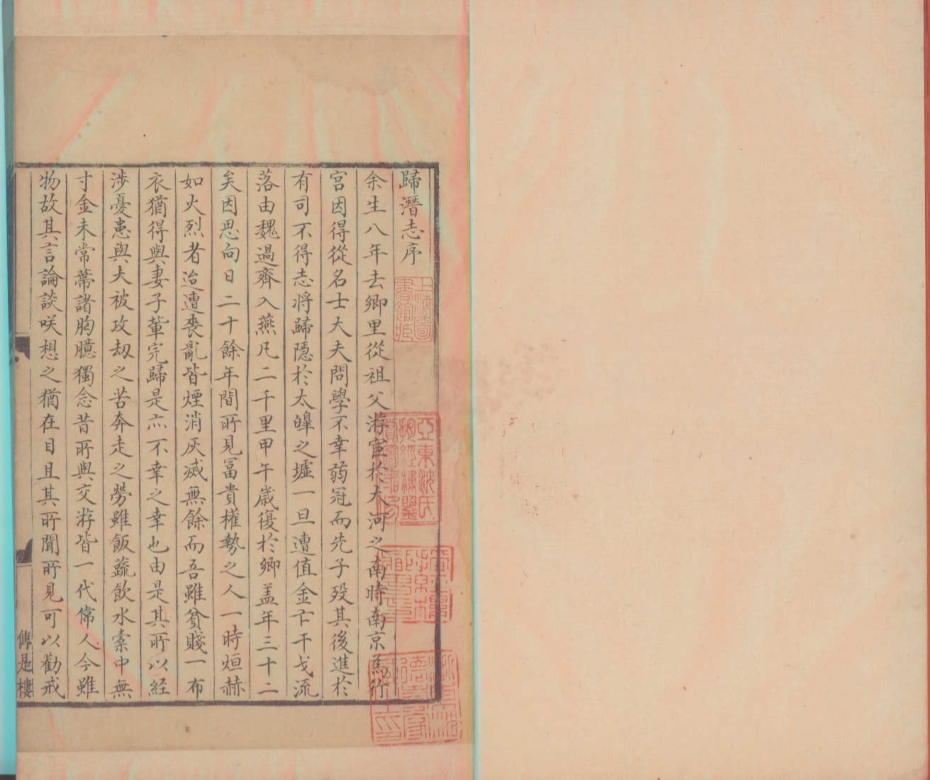 歸潛志序
余生八年去鄉里從祖父游宦於大河之南時南京為行
宮因得從名士大夫問學不幸弱冠而先子歿其後進於
有司不得志將歸隱於太皥之墟一旦遭值金亡干戈流
落由魏過齊入燕凡二千里甲午歲復於鄉盖年三十二
矣因思向日二十餘年間所見富貴權勢之人一時烜赫
如火烈者迨遭喪亂皆煙消灰滅無餘而吾雖貧賤一布
衣猶得與妻子軰完歸是亦不幸之幸也由是其所以經
渉憂患與夫被攻刼之苦奔走之勞雖飯蔬飲水索中無
寸金未常蔕諸胸臆獨念昔所與交游皆一代偉人今雖
物故其言論談咲想之猶在目且其所聞所見可以勸戒
傳是樓
上海圖書館藏